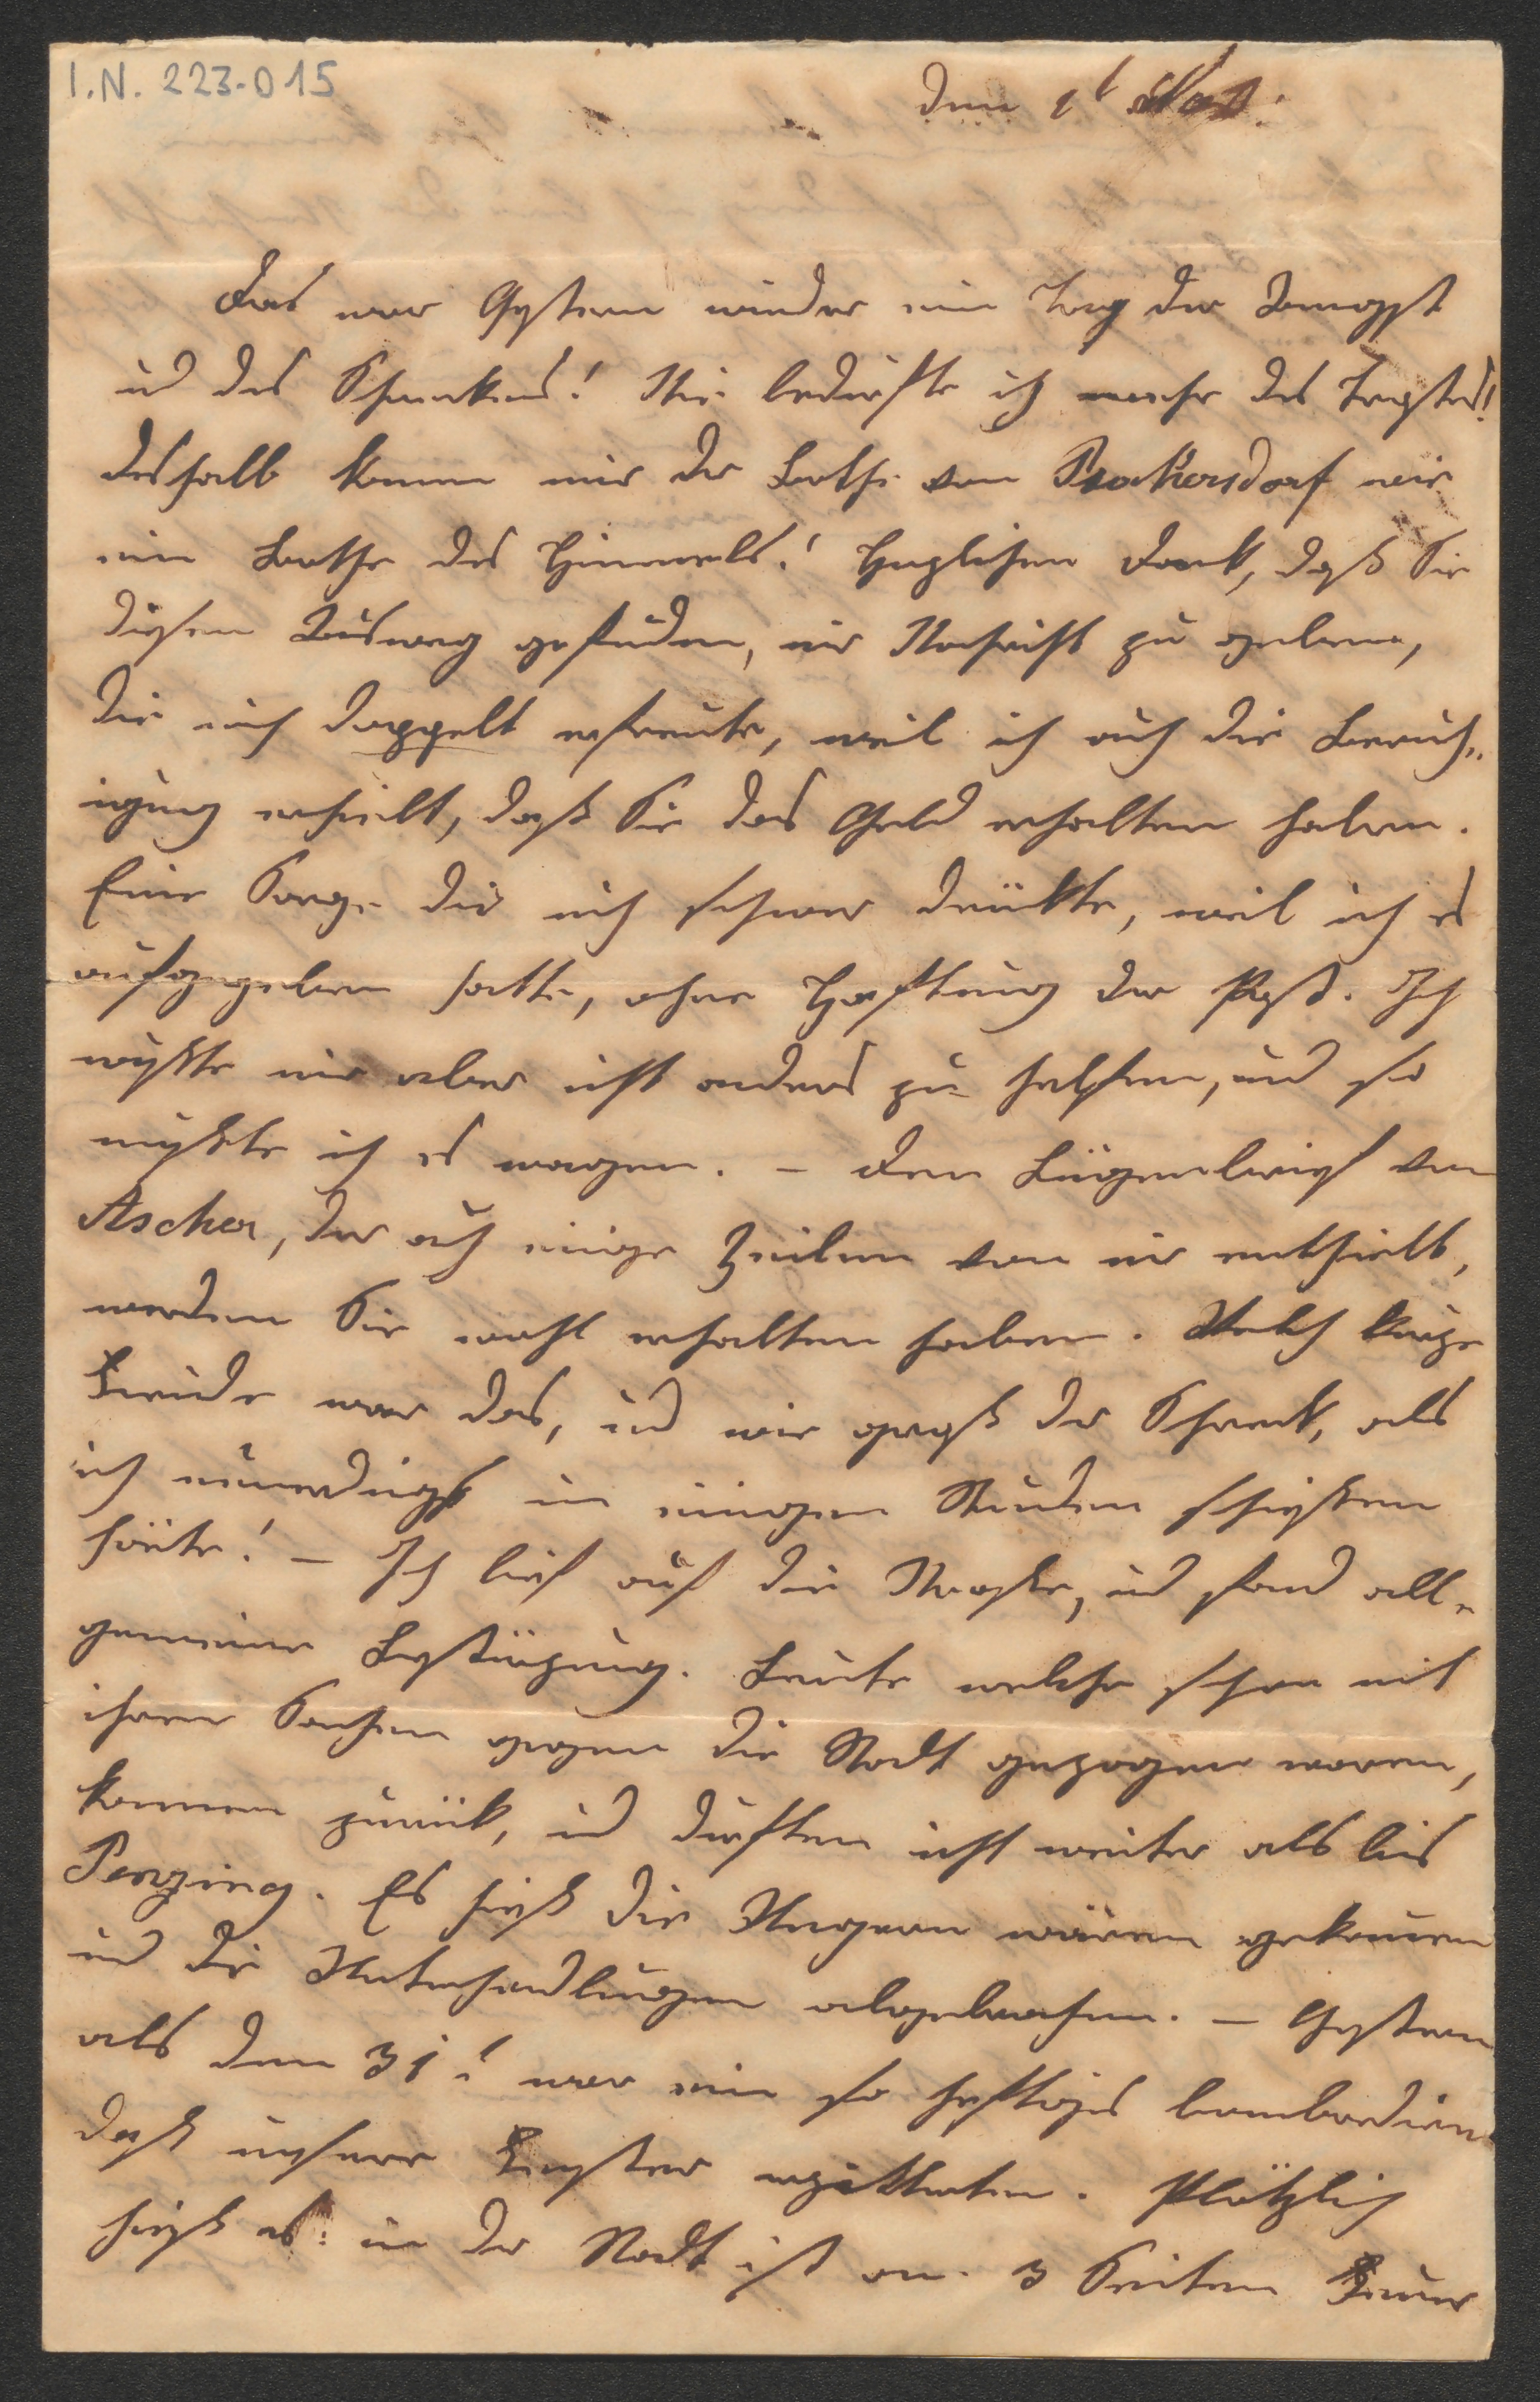 I.N. 223.015
Den 1t Nov.
Das war Gestern wieder ein Tag der Angst
ud des Schreckens! Nie bedurfte ich mehr des Trostes!
deshalb kamm mir der Bothe von Purkersdorf wie
ein Bothe des Himmels! Herzlichen Dank, daß Sie
diesen Ausweg gefunden, mir Nachricht zu geben,
die mich doppelt erfreute, weil ich auch die Beruh„
igung erhielt, daß Sie das Geld erhalten haben.
Eine Sorge die mich schwer drückte, weil ich es
aufgegeben hatte, ohne Haftung der Post. Ich
wußte mir aber nicht anders zu helfen, und so
mußte ich es wagen. – Den Lügenbrief von
Ascher, der auch einige Zeilen von mir enthielt,
werden Sie wohl erhalten haben. Welch kurze
Freude war das, ud wie groß der Schreck, als
ich neuerdings in einigen Stunden schießen
hörte! – Ich lief auf die Strasse, ud fand all„
gemeine Bestürzung. Leute welche schon mit
ihren Sachen gegen die Stadt gezogen waren,
kammen zurück, ud durften nicht weiter als bis
Penzing. Es hieß die Ungarn wären gekommen
und die Unterhandlungen abgebrochen. – Gestern
als den 31t war ein so heftiges bombardiren
daß unsere Fenster erzitterten. Plötzlich
hieß es: in der Stadt ist an 3 Seiten Feuer